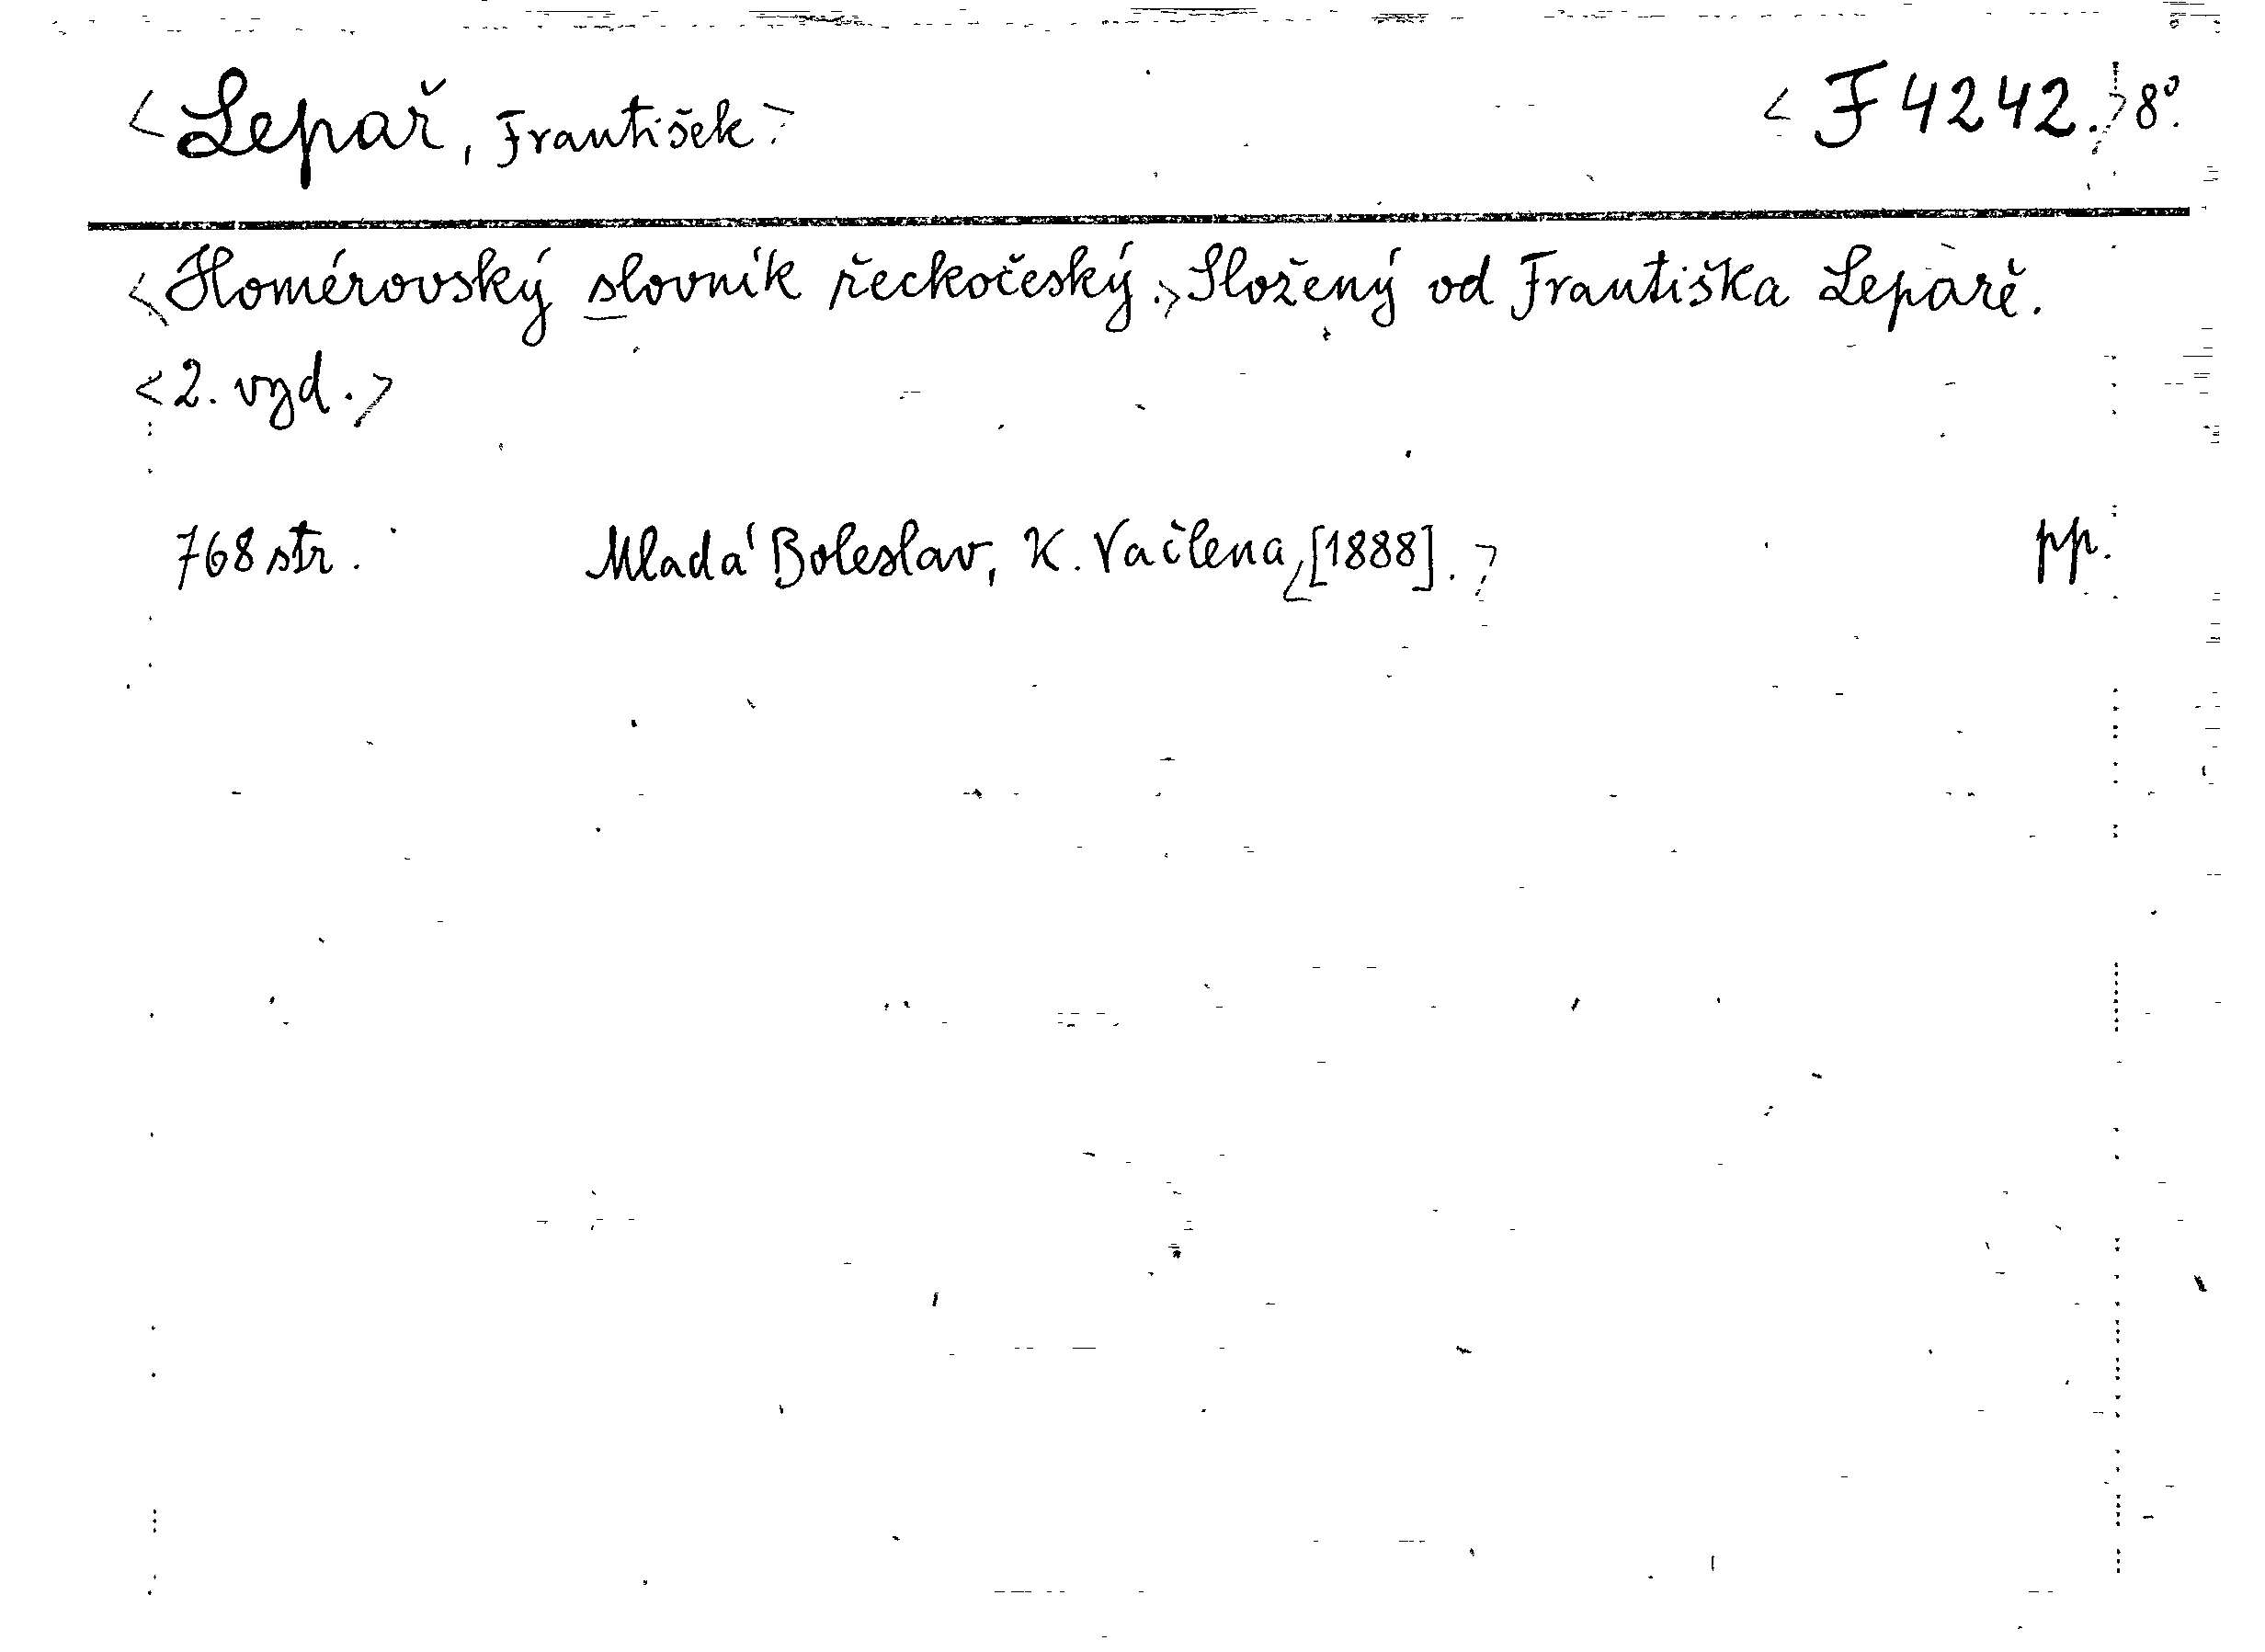 <Lepař, František>
<F 4242.> 8°.
<Homérovský slovník řeckočeský.> Složený od Františka Lepaře.
<2. vyd.>
768 str. Mladá Boleslav, K. Vačlena, <[1888].> pp.